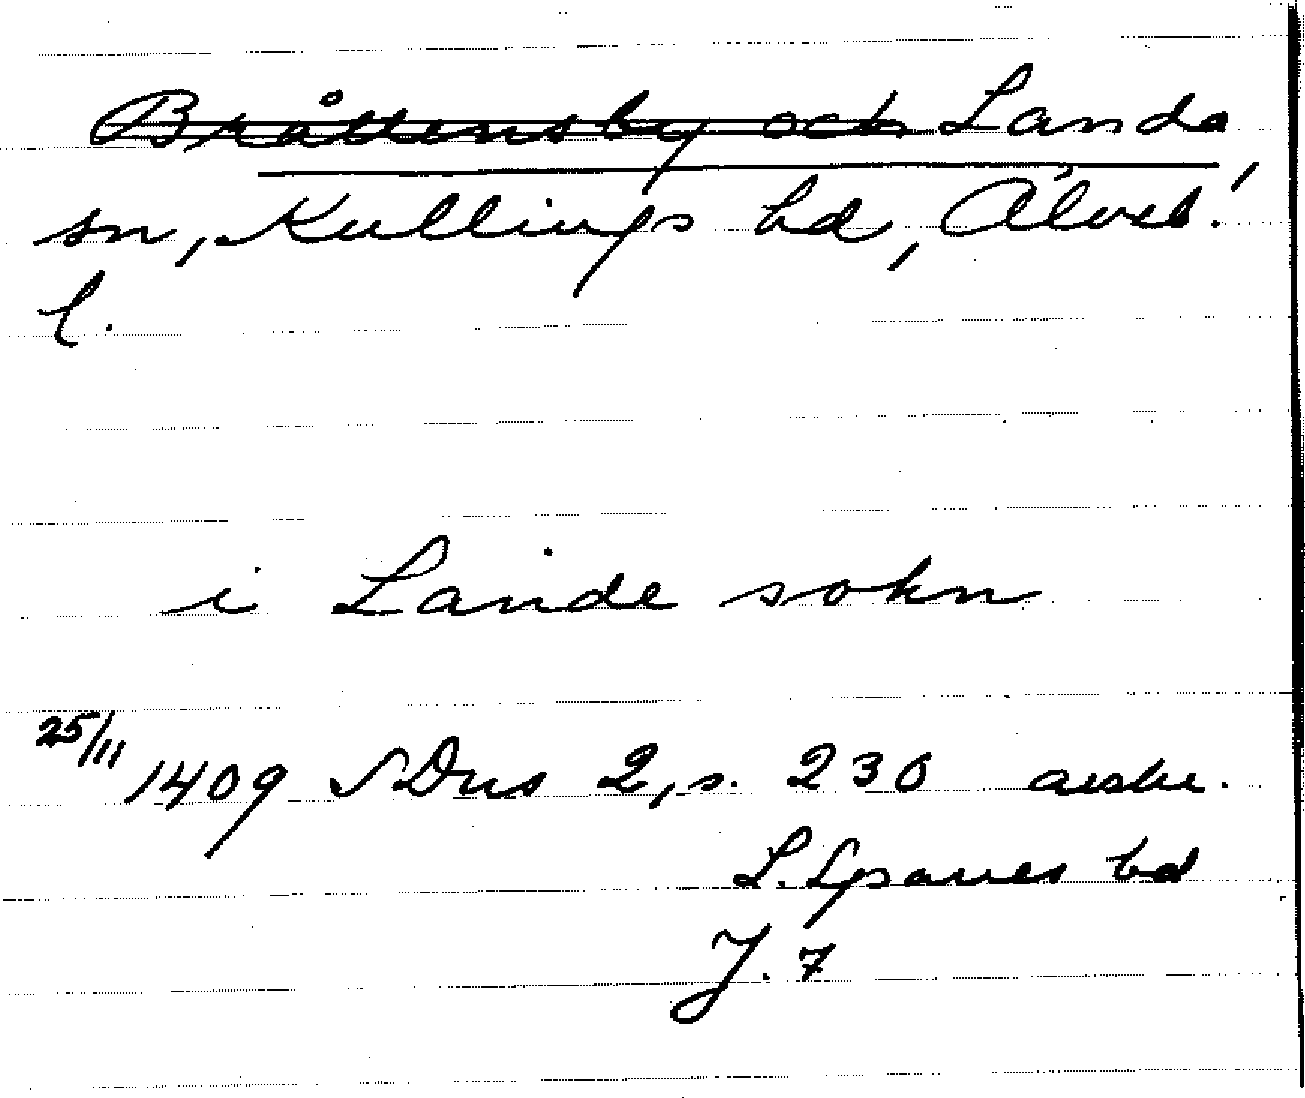 Bråttensby och Landa
sn, Kullings hd, Älvsb.
l.
i Lande sokn
25/11 1409 SDns 2, s. 230 avskr.
hd
J. 7